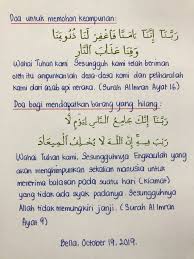 Doa untuk memohon keampunan:
رَبَّنَا إِنَّنَا ءَامَنَّا فَاغْفِرْ لَنَا ذُنُوبَنَا
وَقِنَا عَذَابَ النَّارِ
Wahai Tuhan kami. Sesungguh kami telah beriman
oleh itu ampunkanlah dosa-dosa kami dan peliharalah
kami dari azab api neraka. (Surah Al Imran Ayat 16)
Doa bagi mendapatkan barang yang hilang:
رَبَّنَا إِنَّكَ جَامِعُ النَّاسِ لِيَوْمٍ لَا
رَيْبَ فِيهِ إِنَّ اللَّهَ لَا يُخْلِفُ الْمِيعَادَ
Wahai Tuhan kami. Sesungguhnya Engkaulah yang
akan menghimpunkan sekalian manusia untuk
menerima balasan pada suatu hari (Kiamat)
yang tidak ada syak padanya. Sesungguhnya
Allah tidak memungkiri janji. (Surah Al Imran
Ayat 9)
Bella, October 19, 2019.